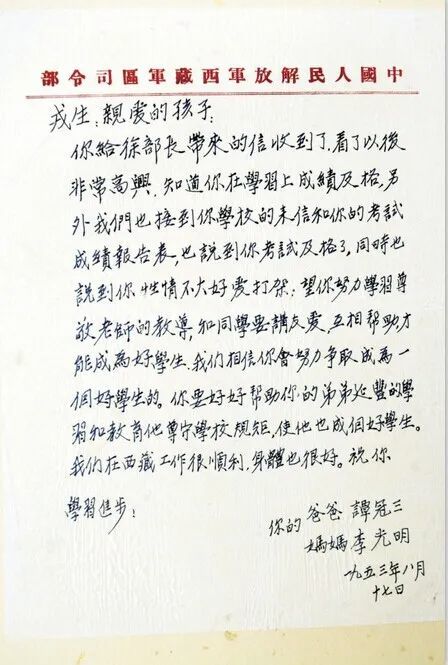 部令司區軍藏西軍放解民人國中
戎生：親愛的孩子：
你給徐部長帶來的信收到了，看了以後
非常高興，知道你在學習上成績及格，另
外我們也接到你學校的來信和你的考試
成績報告表，也說到你考試及格了，同時也
說到你性情不大好愛打架；望你努力學習尊
敬老師的教導，和同學要講友愛，互相帮助才
能成為好學生，我們相信你會努力爭取成為一
個好學生的。你要好好帮助你的弟弟延豐的學
習和教育他尊守學校規矩，使他也成個好學生。
我們在西藏工作很順利，身體也很好。祝你
學習進步！
你的爸爸 譚冠三
媽媽 李光明
一九五三年八月
十七日